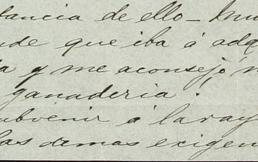 tancia de ello_ Inm
nde que iba á adq
a y me aconsejó n
ganaderia.
bvenir á la ray
las damas exigen